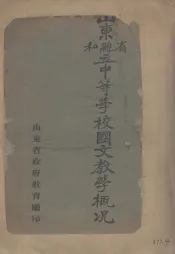 山東省和縣立中等學校國文教學概況
山東省政府教育廳印